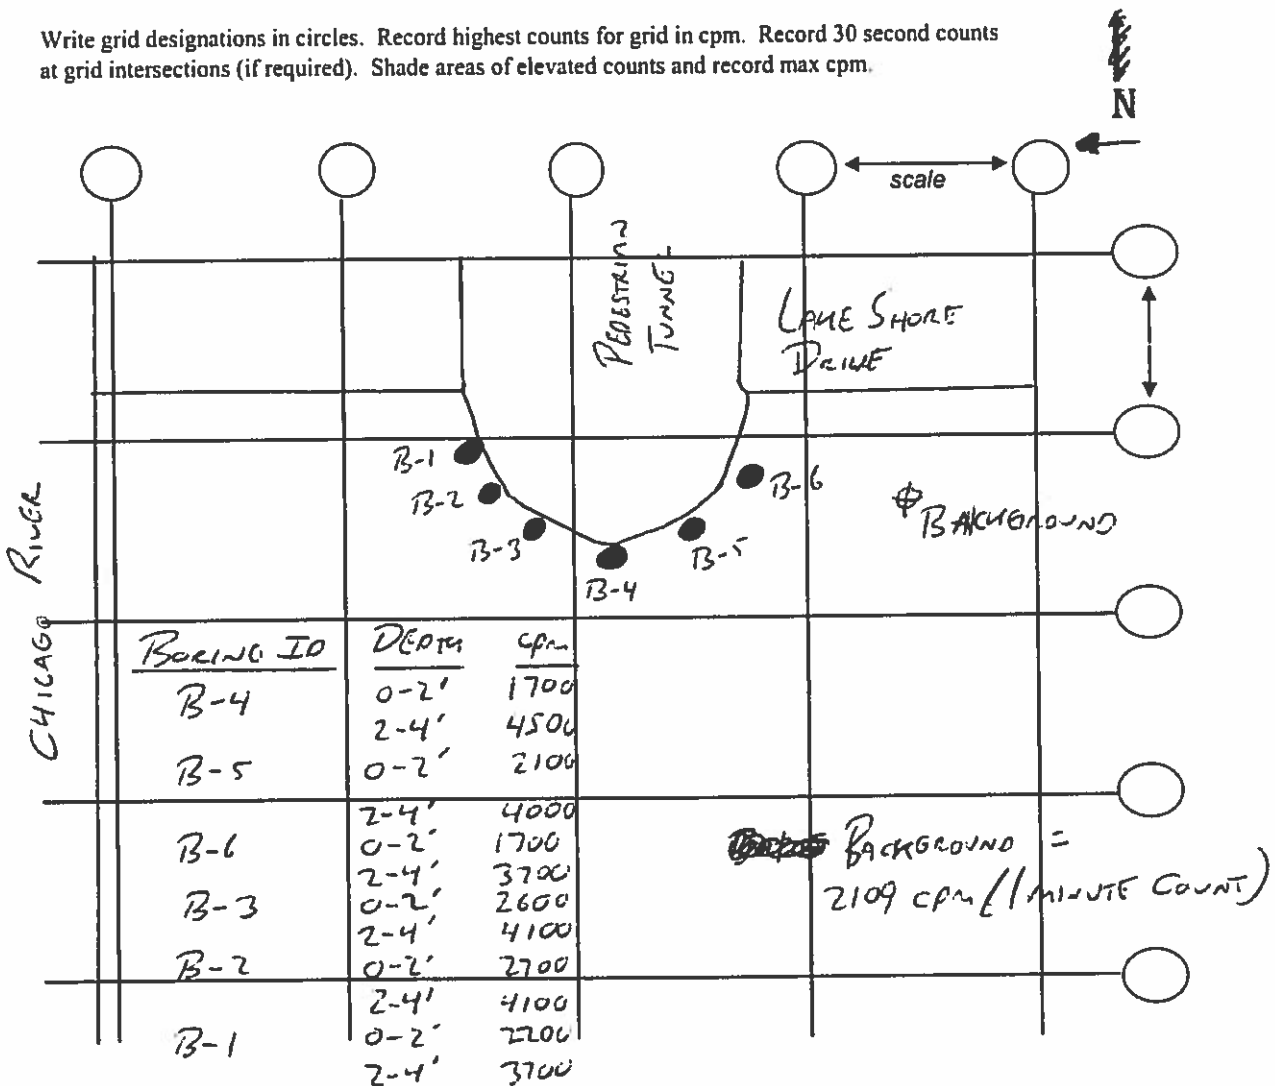 Write grid designations in circles. Record highest counts for grid in cpm. Record 30 second counts
at grid intersections (if required). Shade areas of elevated counts and record max cpm.
N
scale
PEDESTRIAN
TUNNEL
LAKE SHORE
DRIVE
B-1
B-2
B-3
B-4
B-5
B-6
BACKGROUND
CHICAGO RIVER
BORING ID DEPTH cpm
B-4 0-2' 1700
2-4' 4500
B-5 0-2' 2100
2-4' 4000
B-6 0-2' 1700
2-4' 3700
B-3 0-2' 2600
2-4' 4100
B-2 0-2' 2700
2-4' 4100
B-1 0-2' 2200
2-4' 3700
BACKGROUND =
2109 cpm (1 MINUTE COUNT)